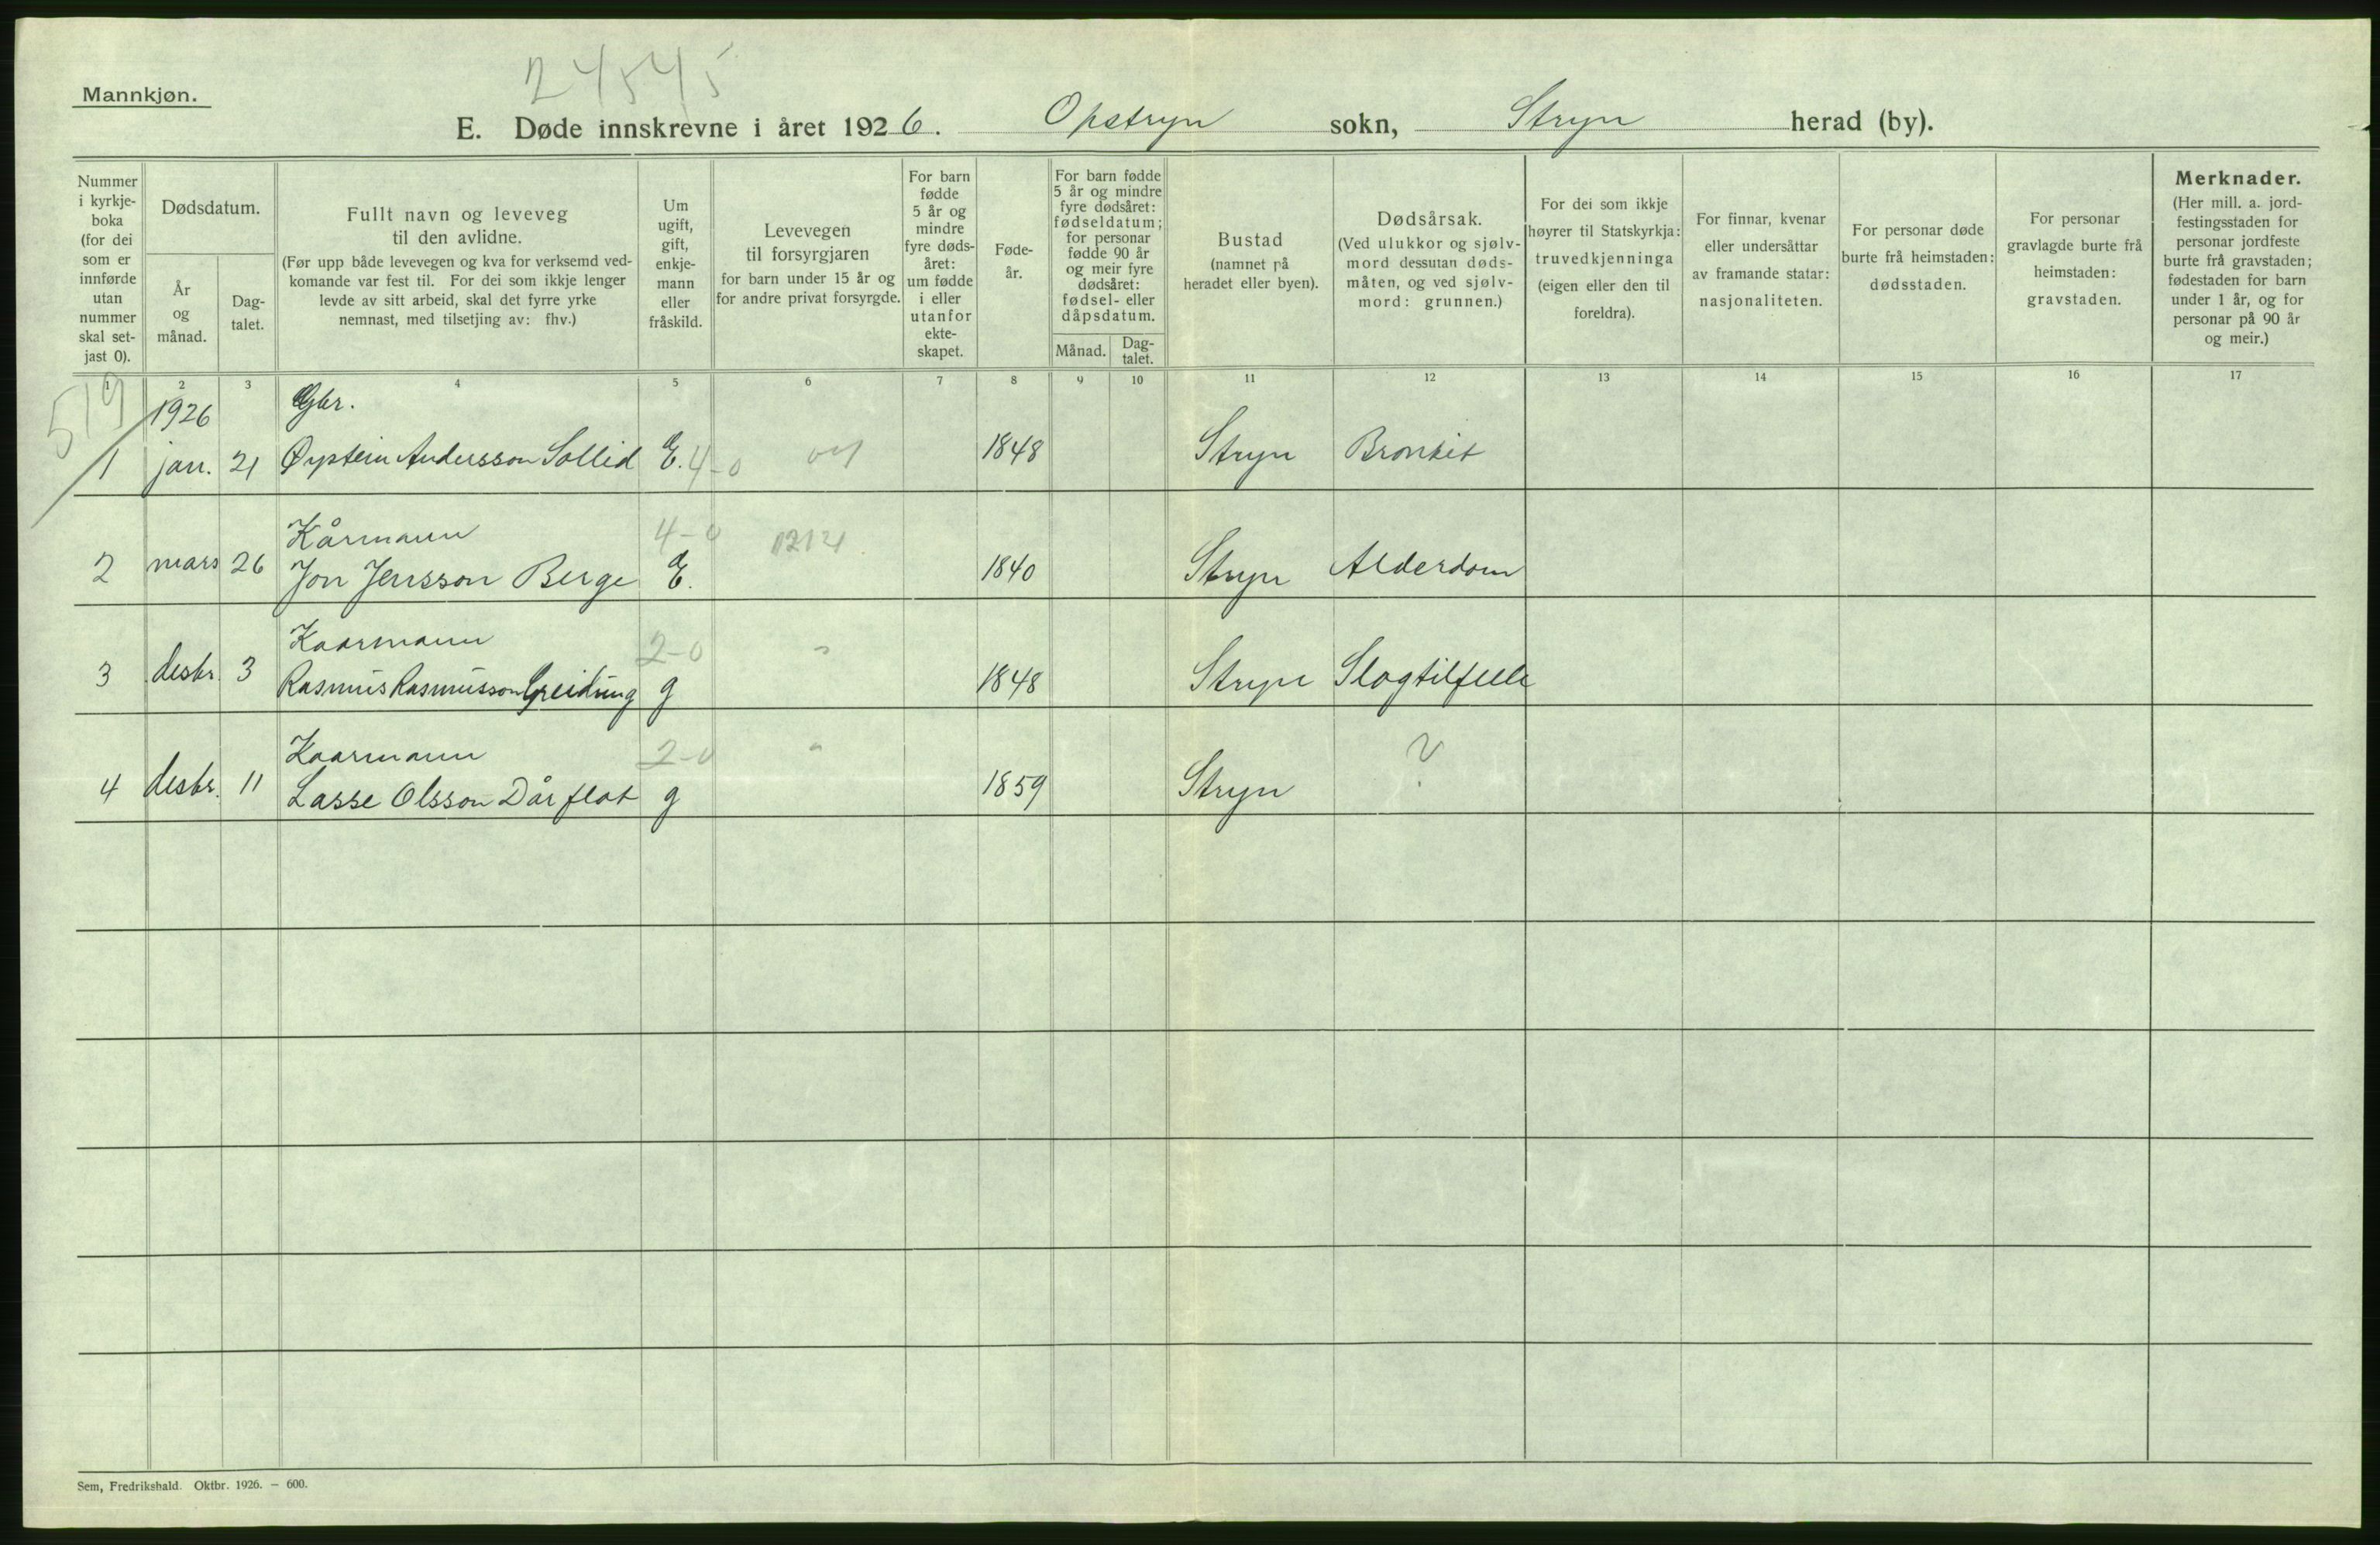 24545
Mannkjøn.
E. Døde innskrevne i året 1926. Opstryn sokn, Stryn herad (by).
Nummer
i kyrkje-
boka
(for dei
som er
innførde
utan
nummer
skal set-
jast 0).
Dødsdatum.
År
og
månad.
Dag-
talet.
Fullt navn og leveveg
til den avlidne.
(Før upp både levevegen og kva for verksemd ved-
komande var fest til. For dei som ikkje lenger
levde av sitt arbeid, skal det fyrre yrke
nemnast, med tilsetjing av: fhv.)
Um
ugift,
gift,
enkje-
mann
eller
fråskild.
Levevegen
til forsyrgjaren
for barn under 15 år og
for andre privat forsyrgde.
For barn
fødde
5 år og
mindre
fyre døds-
året:
um fødde
i eller
utanfor
ekte-
skapet.
Føde-
år.
For barn fødde
5 år og mindre
fyre dødsåret:
fødseldatum;
for personar
fødde 90 år
og meir fyre
dødsåret:
fødsel- eller
dåpsdatum.
Månad.
Dag-
talet.
Bustad
(namnet på
heradet eller byen).
Dødsårsak.
(Ved ulukkor og sjølv-
mord dessutan døds-
måten, og ved sjølv-
mord: grunnen.)
For dei som ikkje
høyrer til Statskyrkja:
truvedkjenninga
(eigen eller den til
foreldra).
For finnar, kvenar
eller undersåttar
av framande statar:
nasjonaliteten.
For personar døde
burte frå heimstaden:
dødsstaden.
For personar
gravlagde burte frå
heimstaden:
gravstaden.
Merknader.
(Her mill. a. jord-
festingsstaden for
personar jordfeste
burte frå gravstaden;
fødestaden for barn
under 1 år, og for
personar på 90 år
og meir.)
1 2 3 4 5 6 7 8 9 10 11 12 13 14 15 16 17
519
1926 Gbr.
1 jan. 21 Øystein Andersson Sollid E. 4-0 1848 Stryn Bronkit
Kårmann 4-0
2 mars 26 Jon Jensson Berge E. 1840 Stryn Alderdom
Kaarmann 2-0 "
3 desbr. 3 Rasmus Rasmusson Greidung g 1848 Stryn Slagtilfelle
Kaarmann 2-0 " ?
4 desbr. 11 Lasse Olsson Dårflot g 1859 Stryn
Sem, Fredrikshald. Oktbr. 1926. – 600.